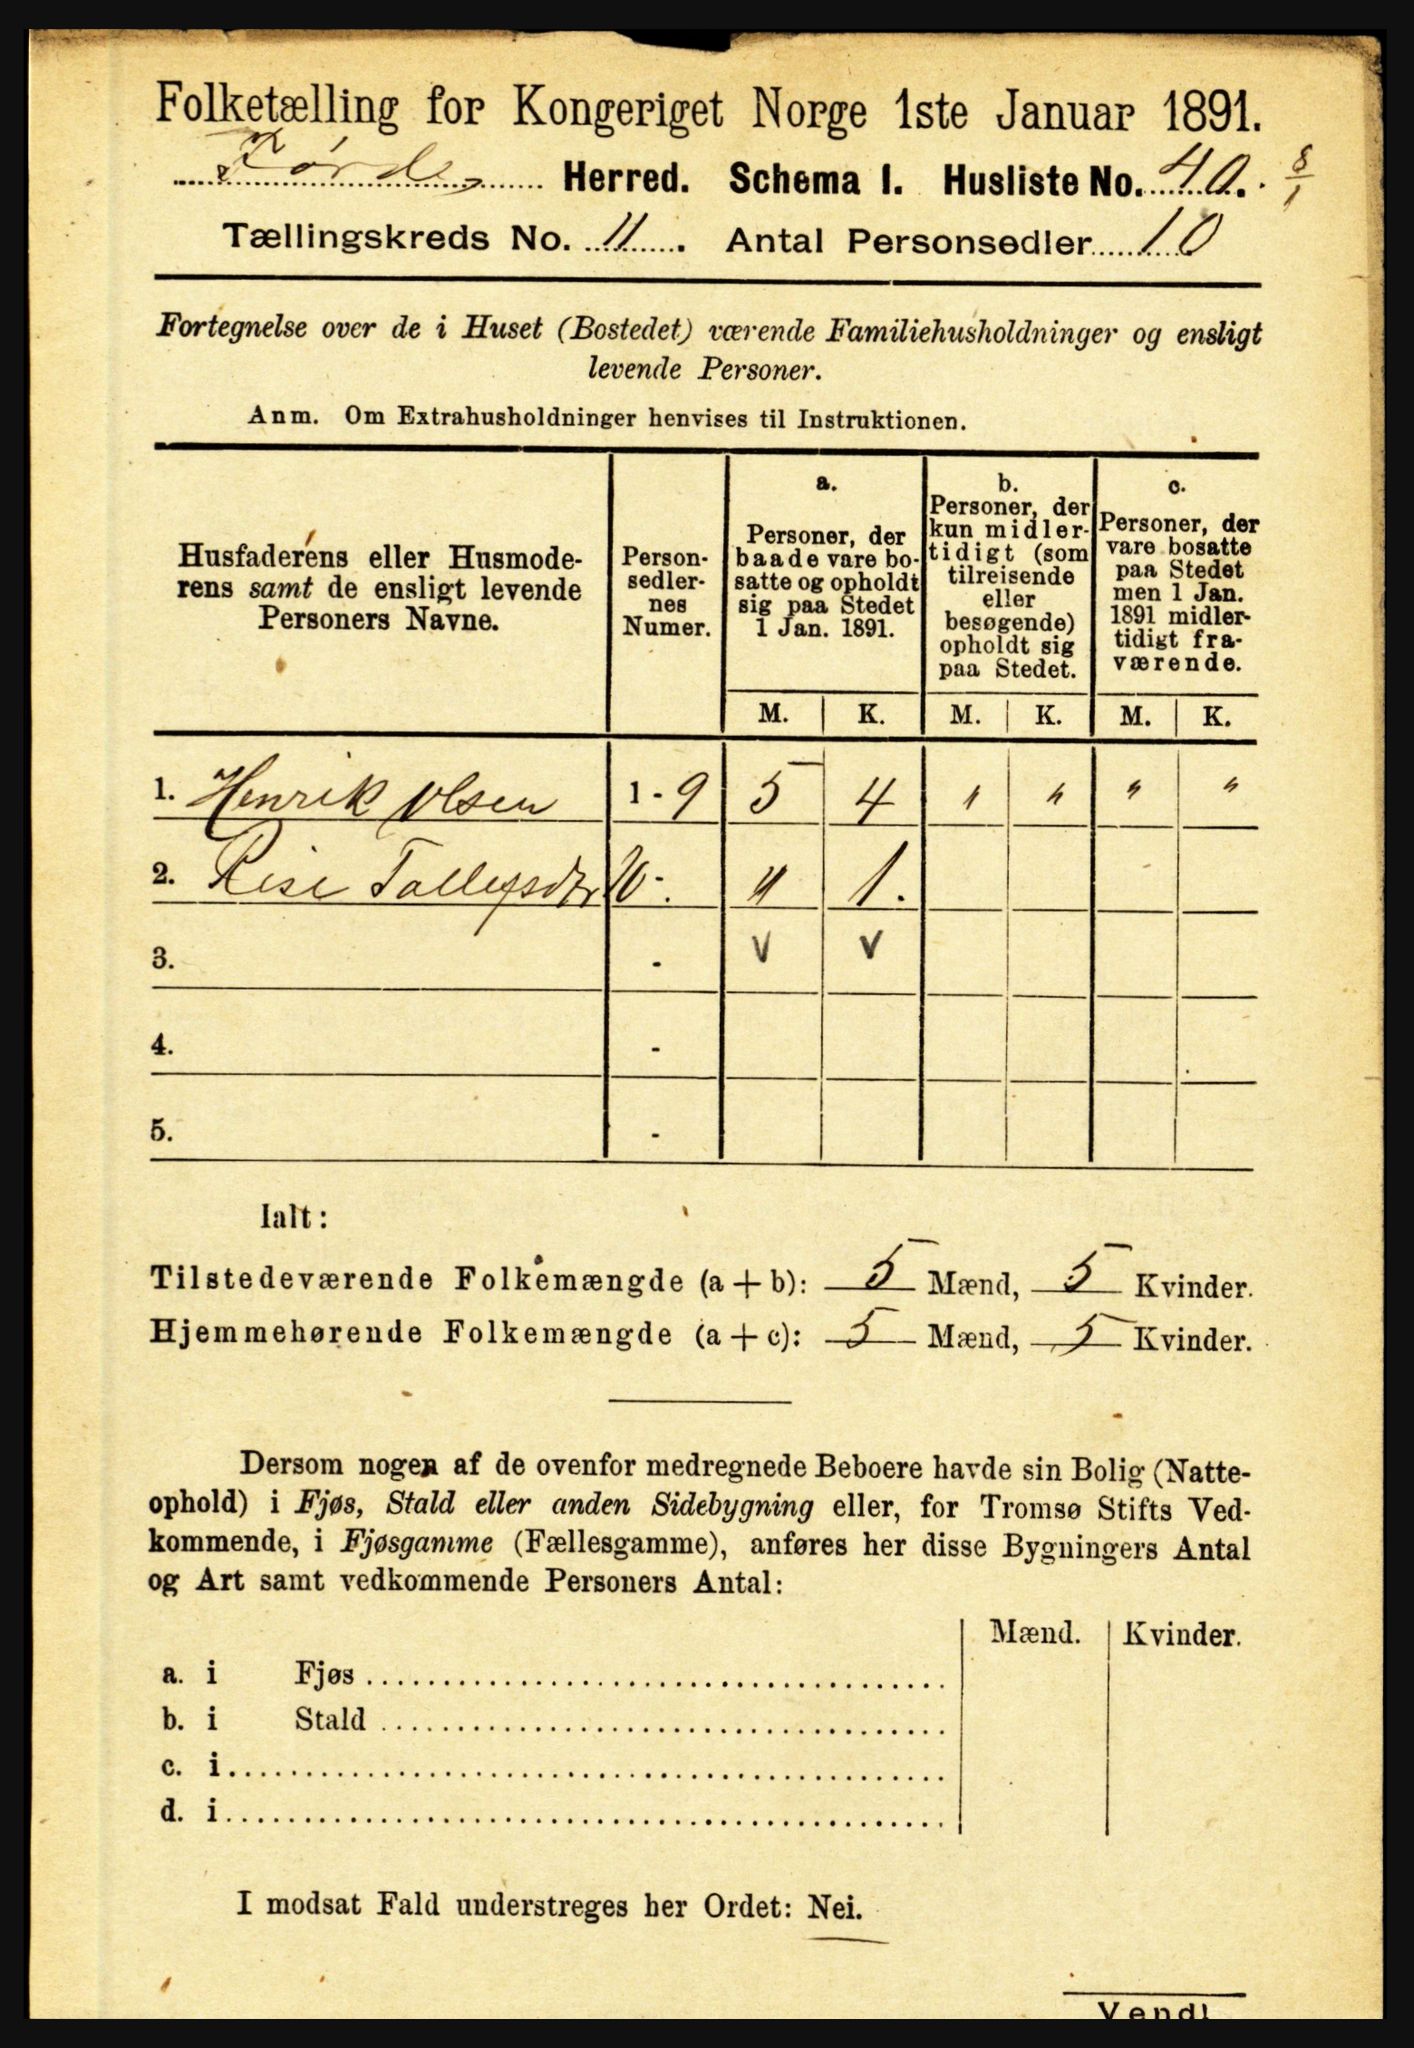 Folketælling for Kongeriget Norge 1ste Januar 1891.
Førde Herred. Schema I. Husliste No. 40. 8/1
Tællingskreds No. 11. Antal Personsedler 10
Fortegnelse over de i Huset (Bostedet) værende Familiehusholdninger og ensligt
levende Personer.
Anm. Om Extrahusholdninger henvises til Instruktionen.
Husfaderens eller Husmode-
rens samt de ensligt levende
Personers Navne.
Person-
sedler-
nes
Numer.
a.
Personer, der
baade vare bo-
satte og opholdt
sig paa Stedet
1 Jan. 1891.
b.
Personer, der
kun midler-
tidigt (som
tilreisende
eller
besøgende)
opholdt sig
paa Stedet.
c.
Personer, der
vare bosatte
paa Stedet
men 1 Jan.
1891 midler-
tidigt fra-
værende.
M. K. M. K. M. K.
1. Henrik Olsen 1 - 9 5 4 " " " "
2. 10 - . " 1.
3. - v v
4. -
5. -
Ialt:
Tilstedeværende Folkemængde (a + b): 5 Mænd, 5 Kvinder.
Hjemmehørende Folkemængde (a + c): 5 Mænd, 5 Kvinder.
Dersom nogen af de ovenfor medregnede Beboere havde sin Bolig (Natte-
ophold) i Fjøs, Stald eller anden Sidebygning eller, for Tromsø Stifts Ved-
kommende, i Fjøsgamme (Fællesgamme), anføres her disse Bygningers Antal
og Art samt vedkommende Personers Antal:
Mænd. Kvinder.
a. i Fjøs
b. i Stald
c. i
d. i
I modsat Fald understreges her Ordet: Nei.
Vend!